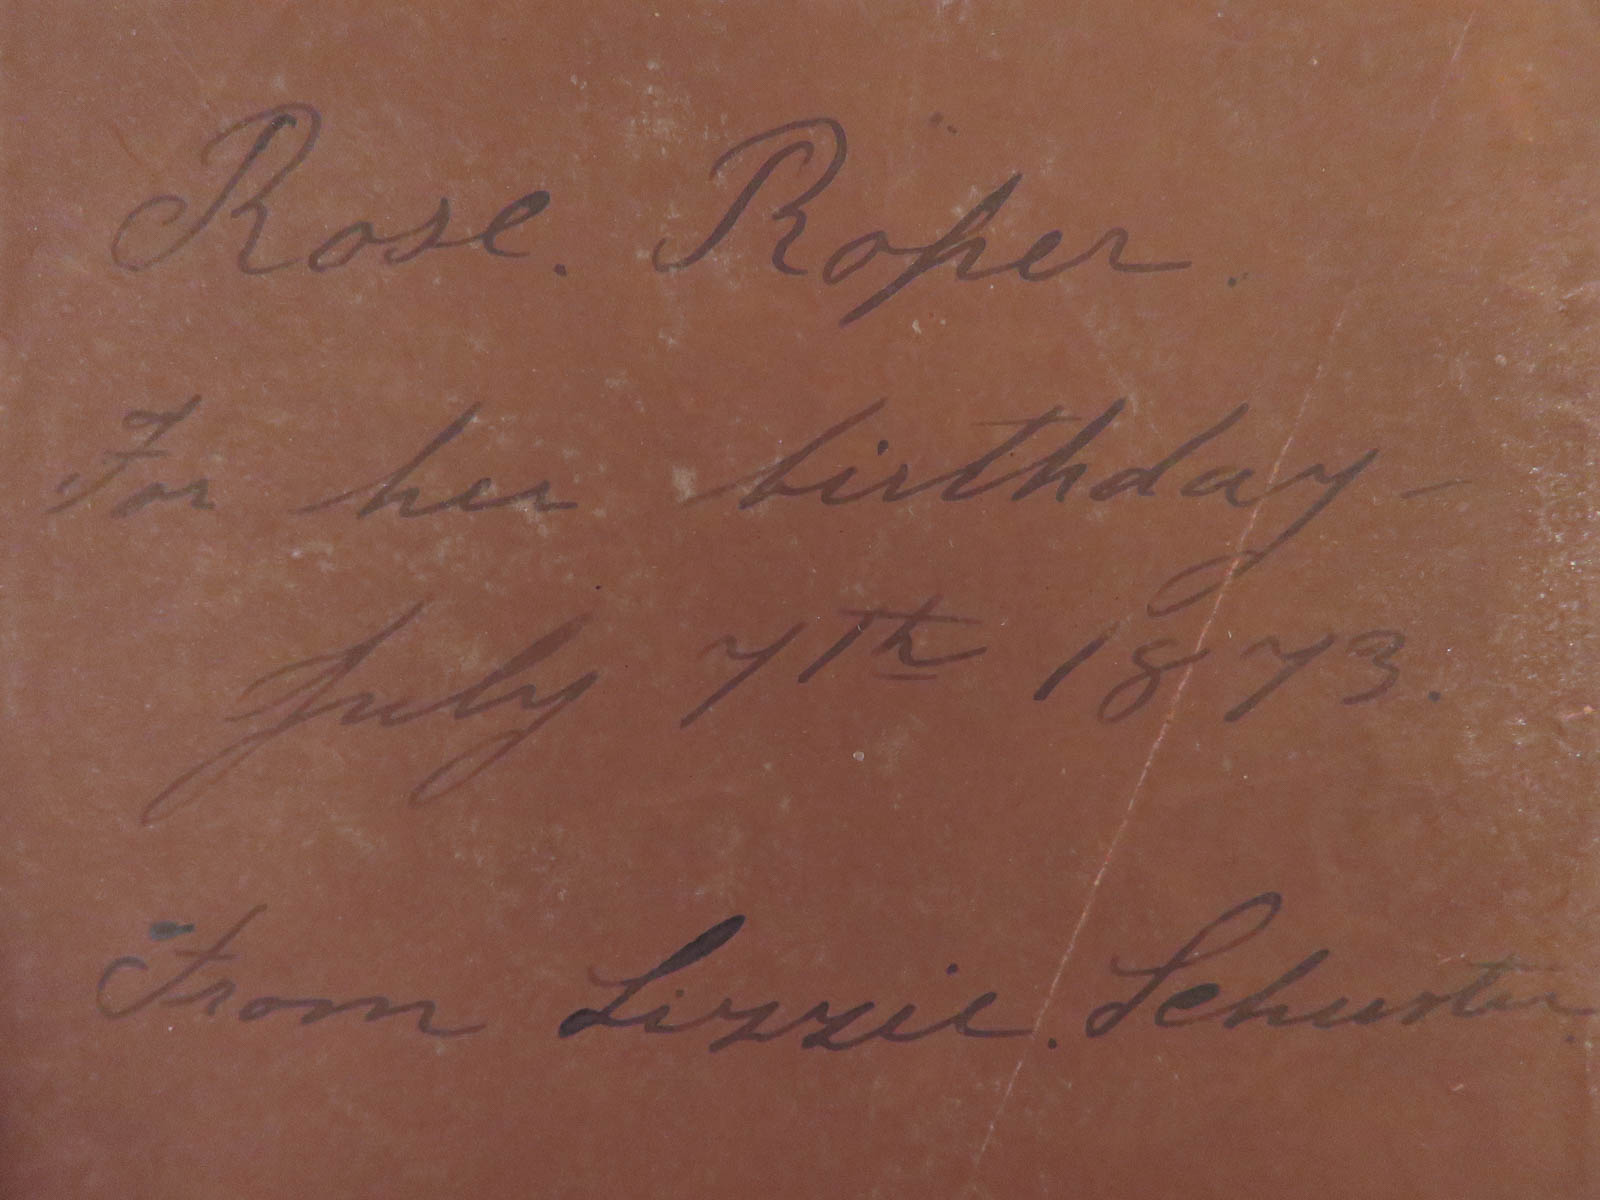 Rose. Roper.
For her birthday -
July 7th 1873.
From Lizzie. Schuster.